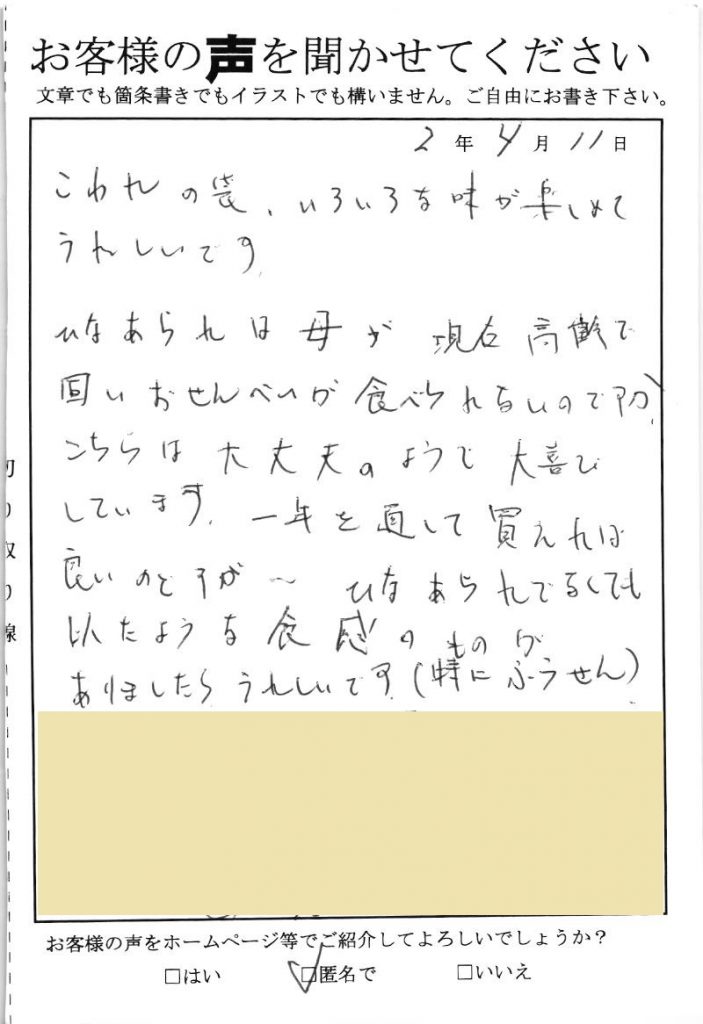 お客様の声を聞かせてください
文章でも箇条書きでもイラストでも構いません。ご自由にお書き下さい。
2年4月11日
こわれの袋、いろいろな味が楽しめて
うれしいです。
ひなあられは母が現在高齢で
固いおせんべいが食べられないのですが、
こちらは大丈夫のようで大喜び
しています。一年を通して買えれば
良いのですが〜 ひなあられでなくても
似たような食感のものが
ありましたらうれしいです(特にふうせん)
切り取り線
お客様の声をホームページ等でご紹介してよろしいでしょうか？
□はい □匿名で □いいえ